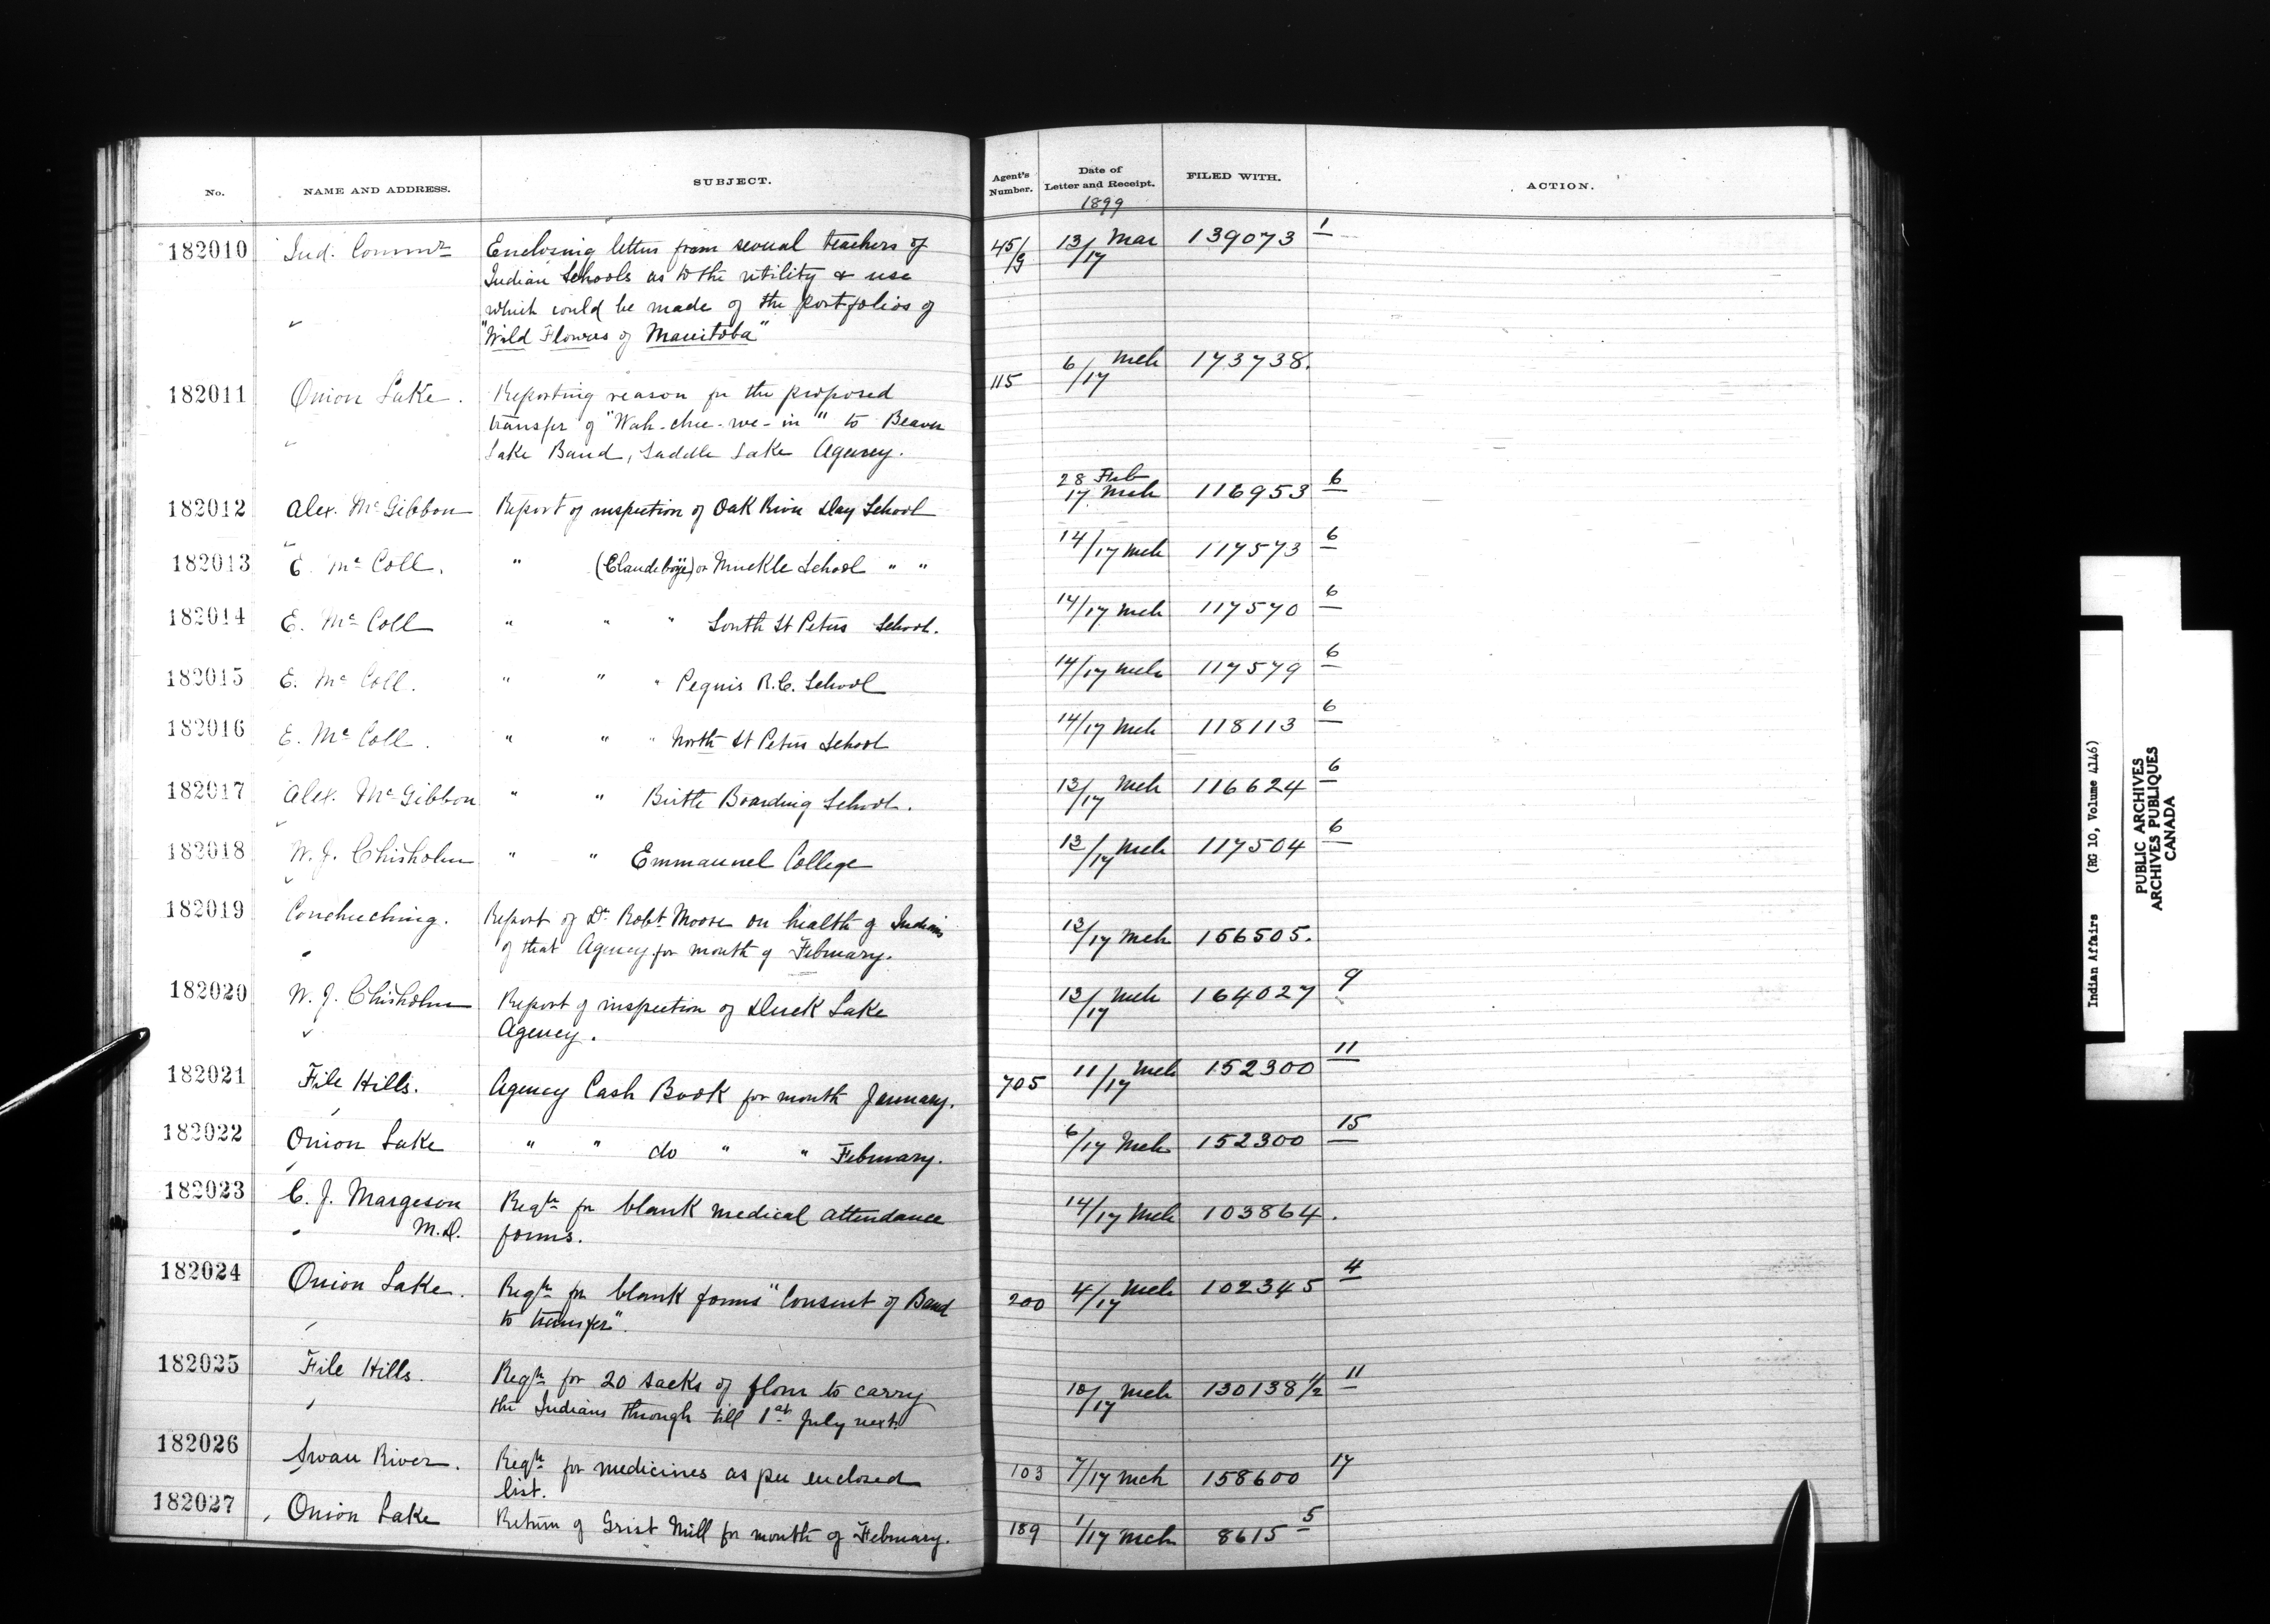 No. NAME AND ADDRESS. SUBJECT. Agent's Number. Date of Letter and Receipt. FILED WITH. ACTION.
1899
182010 Ind. Commr Enclosing letters from several teachers of 45/9 13/17 Mar 139073 1
Indian Schools as to the utility & use
which could be made of the portfolios of
"Wild Flowers of Manitoba"
182011 Onion Lake. Reporting reason for the proposed 115 6/17 Mch 173738.
transfer of "Wah-chee-we-in" to Beaver
Lake Band, Saddle Lake Agency.
182012 Alex. McGibbon Report of inspection of Oak River Day School 28 Feb 17 Mch 116953 6
182013 E. McColl. " (Clandeboye) or Muckle School " " 14/17 Mch 117573 6
182014 E. McColl " " " South St Peters School. 14/17 Mch 117570 6
182015 E. McColl. " " " Peguis R.C. School 14/17 Mch 117579 6
182016 E. McColl. " " " North St Peters School 14/17 Mch 118113 6
182017 Alex. McGibbon " " Birtle Boarding School. 13/17 Mch 116624 6
182018 W. J. Chisholm " " Emmanuel College 13/17 Mch 117504 6
182019 Couchuching. Report of Dr Robt Moore on health of Indians 13/17 Mch 156505.
of that Agency for month of February.
182020 W. J. Chisholm Report of inspection of Duck Lake 13/17 Mch 164027 9
Agency.
182021 File Hills. Agency Cash Book for month January. 705 11/17 Mch 152300 11
182022 Onion Lake " " do " " February. 6/17 Mch 152300 15
182023 C. J. Margeson Reqn for blank medical attendance 14/17 Mch 103864.
M.D. forms.
182024 Onion Lake. Reqn for blank forms "Consent of Band 200 4/17 Mch 102345 4
to transfer".
182025 File Hills. Reqn for 20 sacks of flour to carry 10/17 Mch 130138 1/2 11
the Indians through till 1st July next.
182026 Swan River. Reqn for medicines as per enclosed 103 7/17 Mch 158600 17
list.
182027 Onion Lake Return of Grist Mill for month of February. 189 1/17 Mch 8615 5
Indian Affairs (RG 10, Volume 4146)
PUBLIC ARCHIVES
ARCHIVES PUBLIQUES
CANADA